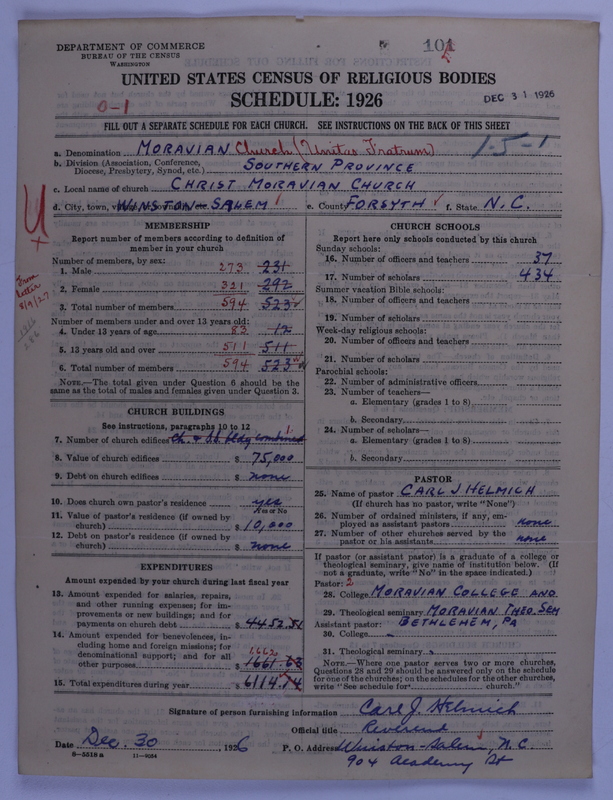 DEPARTMENT OF COMMERCE
BUREAU OF THE CENSUS
WASHINGTON
UNITED STATES CENSUS OF RELIGIOUS BODIES
SCHEDULE: 1926
DEC 31 1926
0-1
FILL OUT A SEPARATE SCHEDULE FOR EACH CHURCH. SEE INSTRUCTIONS ON THE BACK OF THIS SHEET
1-5-1
a. Denomination MORAVIAN Church (Unitas Fratrum)
b. Division (Association, Conference, Diocese, Presbytery, Synod, etc.) SOUTHERN PROVINCE
c. Local name of church CHRIST MORAVIAN CHURCH
d. City, town, WINSTON-SALEM e. County FORSYTH f. State N.C.
MEMBERSHIP
Report number of members according to definition of member in your church
Number of members, by sex:
1. Male 273 231
2. Female 321 292
3. Total number of members 594 523
Number of members under and over 13 years old:
4. Under 13 years of age 83 12
5. 13 years old and over 511 511
6. Total number of members 594 523
NOTE.—The total given under Question 6 should be the same as the total of males and females given under Question 3.
From letter 8/9/27
CHURCH BUILDINGS
See instructions, paragraphs 10 to 12
7. Number of church edifices Ch. & S.S. bldg combined 1
8. Value of church edifices $ 75,000
9. Debt on church edifices $ none
10. Does church own pastor's residence yes
Yes or No
11. Value of pastor's residence (if owned by church) $ 10,000
12. Debt on pastor's residence (if owned by church) $ none
EXPENDITURES
Amount expended by your church during last fiscal year
13. Amount expended for salaries, repairs, and other running expenses; for improvements or new buildings; and for payments on church debt $ 4452.51
14. Amount expended for benevolences, including home and foreign missions; for denominational support; and for all other purposes 1,662 $ 1661.63
15. Total expenditures during year $ 6114.14
CHURCH SCHOOLS
Report here only schools conducted by this church
Sunday schools:
16. Number of officers and teachers 37
17. Number of scholars 434
Summer vacation Bible schools:
18. Number of officers and teachers
19. Number of scholars
Week-day religious schools:
20. Number of officers and teachers
21. Number of scholars
Parochial schools:
22. Number of administrative officers
23. Number of teachers—
a. Elementary (grades 1 to 8)
b. Secondary
24. Number of scholars—
a. Elementary (grades 1 to 8)
b. Secondary
PASTOR
25. Name of pastor CARL J HELMICH
(If church has no pastor, write "None")
26. Number of ordained ministers, if any, employed as assistant pastors none
27. Number of other churches served by the pastor or his assistants none
If pastor (or assistant pastor) is a graduate of a college or theological seminary, give name of institution below. (If not a graduate, write "No" in the space indicated.)
Pastor: 2
28. College MORAVIAN COLLEGE AND
29. Theological seminary MORAVIAN THEO. SEM
BETHLEHEM, PA
Assistant pastor:
30. College
31. Theological seminary
NOTE.—Where one pastor serves two or more churches, Questions 28 and 29 should be answered only on the schedule for one of the churches; on the schedules for the other churches, write "See schedule for church."
Signature of person furnishing information Carl J. Helmich
Official title Reverend
Date Dec. 30 1926 P. O. Address Winston-Salem, N.C.
904 Academy St
8-5518a 11-9034